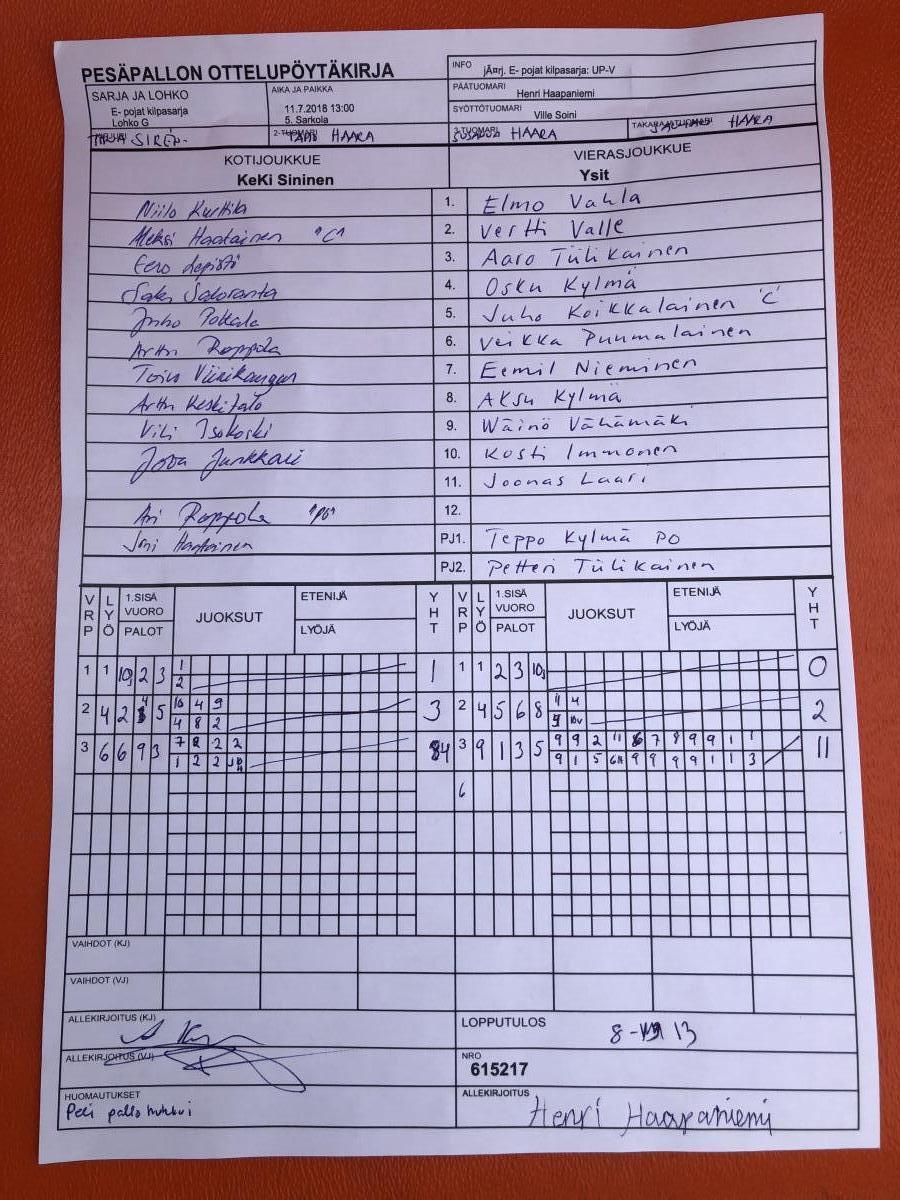 PESÄPALLON OTTELUPÖYTÄKIRJA
INFO jÃ¤rj. E- pojat kilpasarja: UP-V
SARJA JA LOHKO
E- pojat kilpasarja
Lohko G
AIKA JA PAIKKA
11.7.2018 13:00
5. Sarkola
PÄÄTUOMARI
Henri Haapaniemi
SYÖTTÖTUOMARI
Ville Soini
SIRÉN
2-TUOMARI HAARA
HAARA
HAARA
KOTIJOUKKUE
KeKi Sininen
VIERASJOUKKUE
Ysit
Niilo Kurttila 1. Elmo Vahla
Aleksi Haatainen "C" 2. Vertti Valle
Eero Lepistö 3. Aaro Tulikainen
Saku Saloranta 4. Osku Kylmä
Juho 5. Juho Koikkalainen 'C'
Arttu Roppola 6. Veikka Puumalainen
Toivo 7. Eemil Nieminen
Arttu Keskitalo 8. Aksu Kylmä
Vili Isokoski 9. Wäinö Vähämäki
Junkkari 10. Kosti Immonen
11. Joonas Laari
Ari Roppola 12.
Joni Haatainen PJ1. Teppo Kylmä PO
PJ2. Petteri Tulikainen
VRP LYÖ 1.SISÄ VUORO PALOT JUOKSUT ETENIJÄ LYÖJÄ YHT VRP LYÖ 1.SISÄ VUORO PALOT JUOKSUT ETENIJÄ LYÖJÄ YHT
1 1 10 2 3 1 1 1 1 2 3 10 0
2
2 4 2 5 10 4 9 3 2 4 5 6 8 4 2
4 8 2 9
3 6 6 9 3 7 2 2 4 3 9 1 3 5 9 9 2 11 7 8 9 9 1 1 11
1 2 2 9 1 5 9 9 9 9 1 1 3
6
VAIHDOT (KJ)
VAIHDOT (VJ)
ALLEKIRJOITUS (KJ)
LOPPUTULOS 8-13
ALLEKIRJOITUS (VJ)
NRO
615217
HUOMAUTUKSET
Peli pallo hukkui
ALLEKIRJOITUS
Henri Haapaniemi